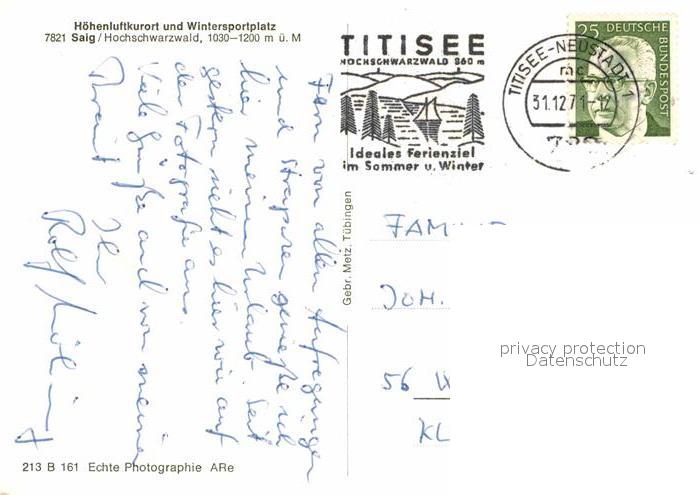 Höhenluftkurort und Wintersportplatz
7821 Saig / Hochschwarzwald, 1030—1200 m ü. M
Fern von allen Aufregungen
und Strapazen genieße ich
hier meinen Urlaub. Seit
gestern sieht es hier wie auf
der Fotografie aus.
Viele Grüße auch von meiner
Braut
Ihr
Rolf
213 B 161 Echte Photographie ARe
Gebr. Metz, Tübingen
TITISEE
HOCHSCHWARZWALD 860 m
Ideales Ferienziel
im Sommer u. Winter
TITISEE-NEUSTADT 1
mc
31.12.71-12
25 DEUTSCHE BUNDESPOST
FAM
JOH.
56 W
KL
privacy protection
Datenschutz